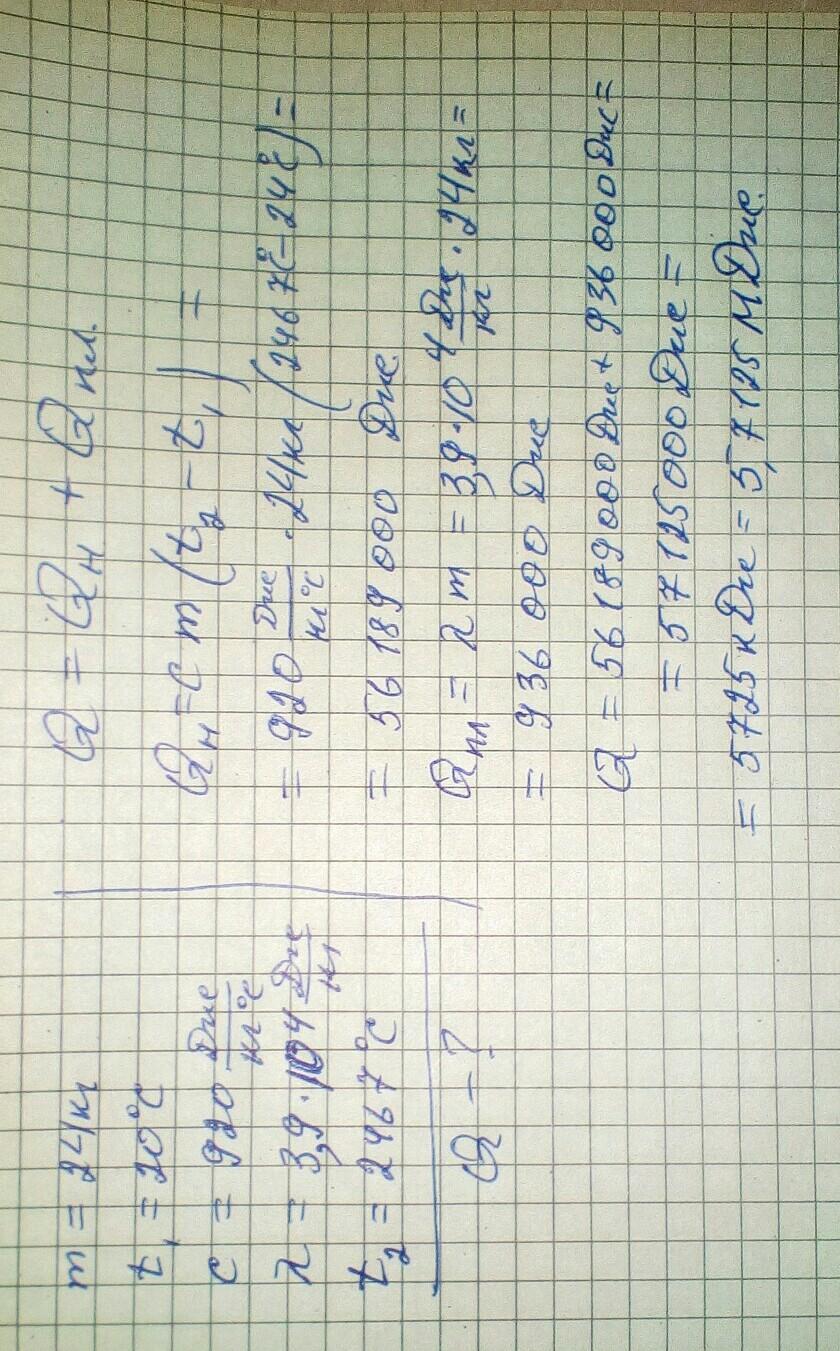 m = 24кг
t₁ = 20°C
c = 920 Дже/кг°C
λ = 3,9·10⁴ Дже/кг
t₂ = 2467°C
Q – ?
Q = Qн + Q пл.
Qн = c m (t₂ – t₁) =
= 920 Дже/кг°C · 24кг (2467°C – 24°C) =
= 56 189 000 Дже
Qпл = λ m = 3,9·10⁴ Дже/кг · 24кг =
= 936 000 Дже
Q = 56 189 000 Дже + 936 000 Дже =
= 57 125 000 Дже =
= 5725 кДже = 5,7125 МДже.